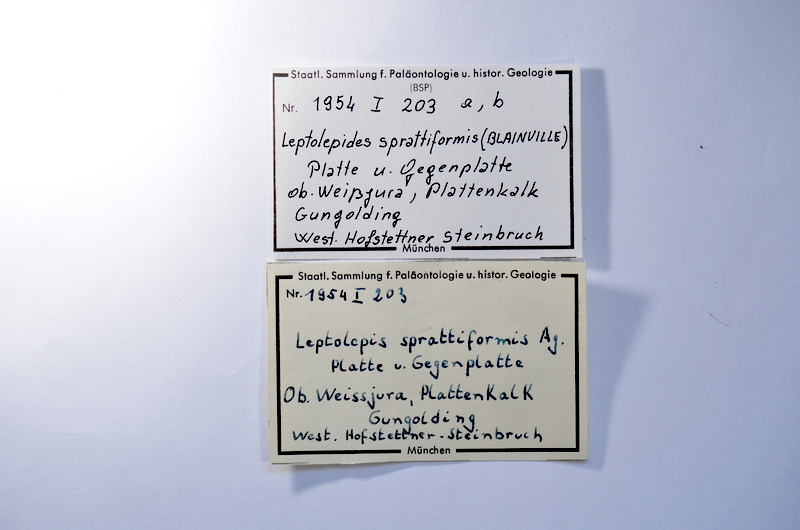 Staatl. Sammlung f. Paläontologie u. histor. Geologie
(BSP)
Nr. 1954 I 203 a, b
Leptolepides sprattiformis (BLAINVILLE)
Platte u. Gegenplatte
ob. Weißjura, Plattenkalk
Gungolding
West. Hofstettner Steinbruch
München
Staatl. Sammlung f. Paläontologie u. histor. Geologie
Nr. 1954 I 203
Leptolepis sprattiformis Ag.
Platte u. Gegenplatte
Ob. Weissjura, Plattenkalk
Gungolding
West. Hofstettner-Steinbruch
München